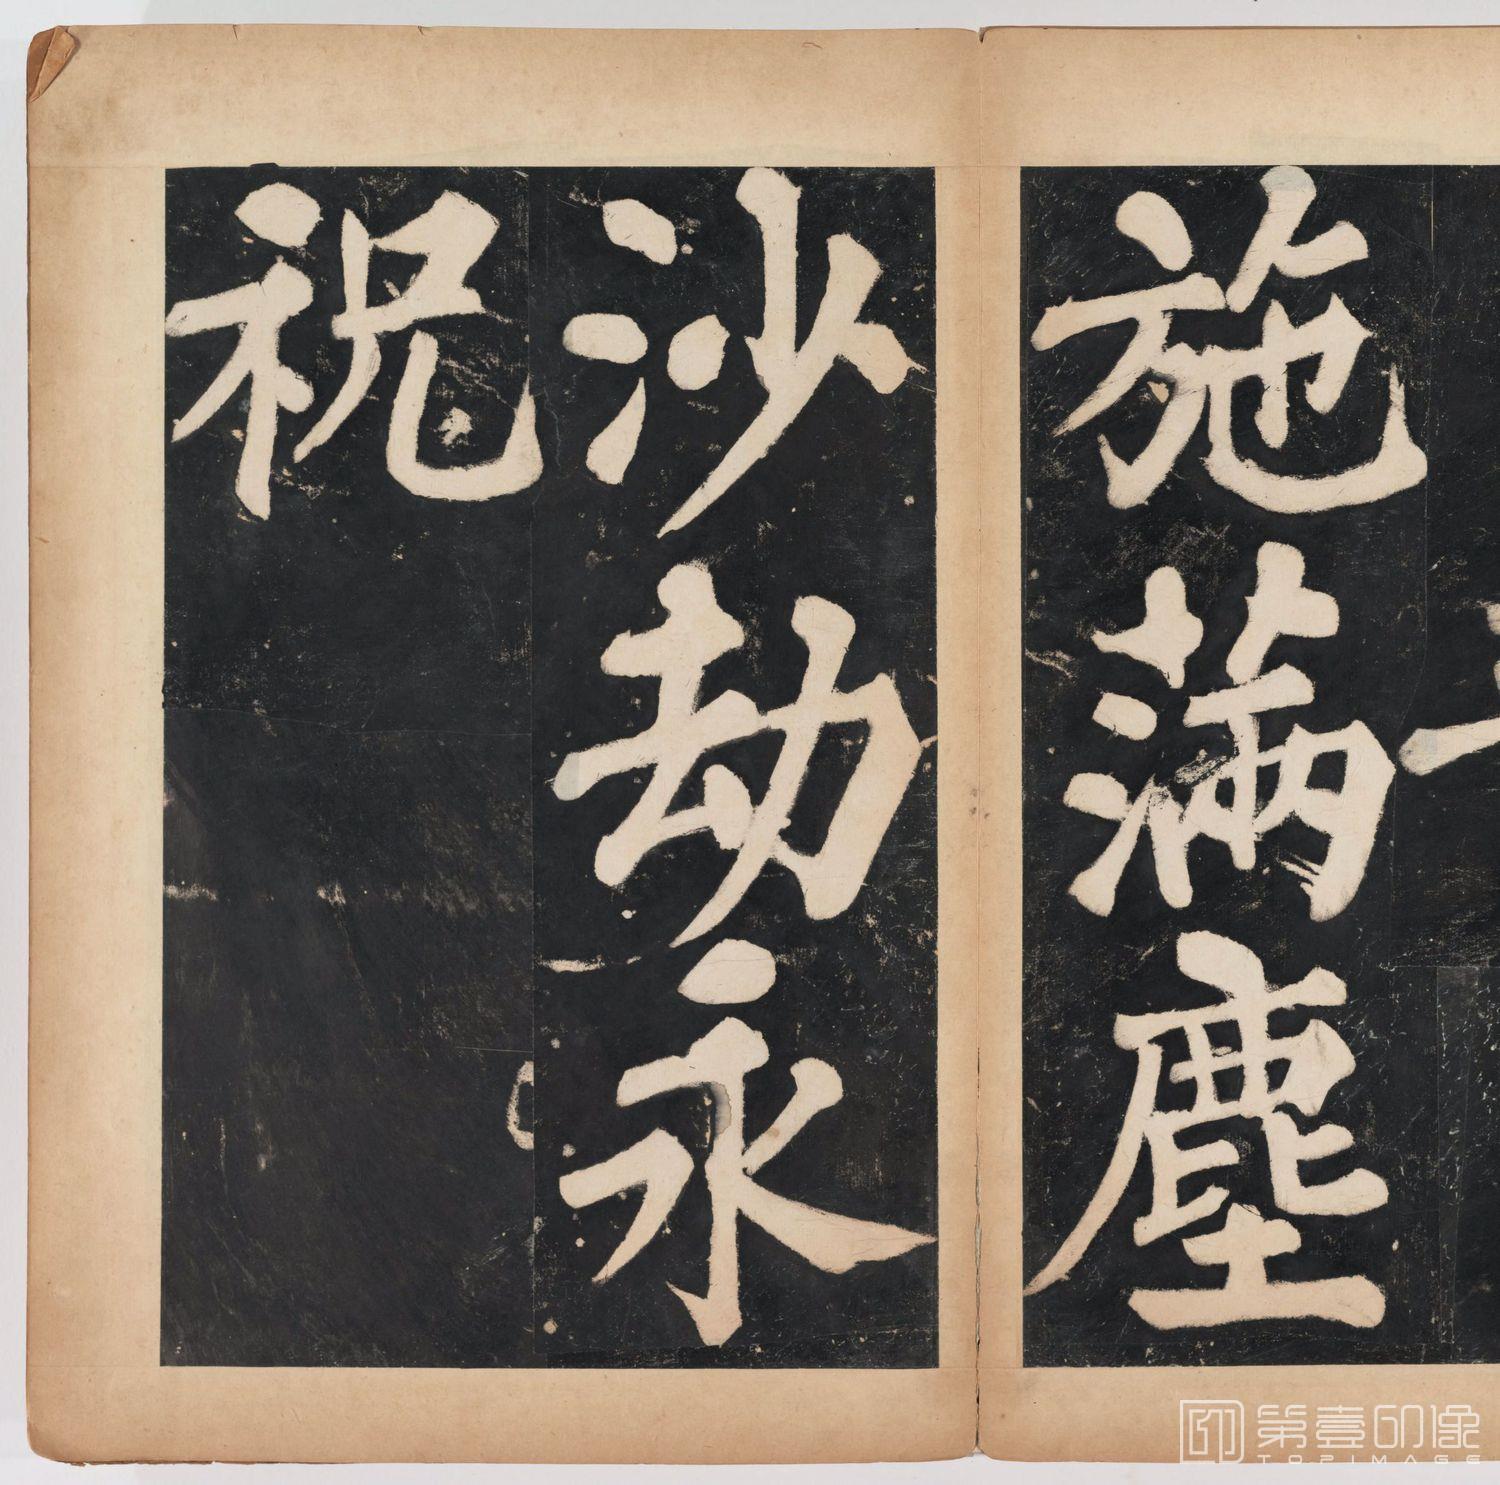 施滿塵
沙劫永
祝
第壹印像
TOPIMAGE